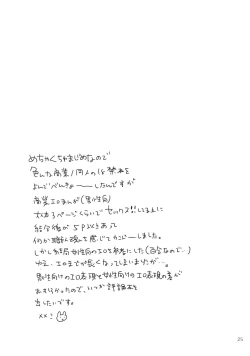 めちゃくちゃまじめなので
色んな商業/同人の18禁本を
よんでべんきょーーしたんですが
商業エロまんが(男性向)
大体3ページくらいでセックス!!してるのに
総合後が5P以上あって
何か職人魂を感じてかんどーしました。
しかし結局女性向のエロを参考にした(百合なので…)
ゆえ、エロまでが長くなってしまいましたが…。
男性向けのエロ表現と女性向けのエロ表現の差が
おもしろかったので、いつか評論本を
出したいです。
××:
25